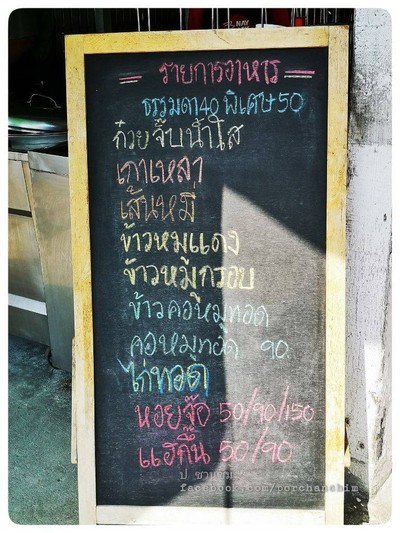 รายการอาหาร
ธรรมดา 40 พิเศษ 50
ก๋วยจั๊บน้ำใส
เกาเหลา
เส้นหมี่
ข้าวหมูแดง
ข้าวหมูกรอบ
ข้าวคอหมูทอด
คอหมูทอด 90
ไก่ทอด
หอยจ้อ 50/90/150
แฮกึ๊น 50/90
facebook.com/porchanchim